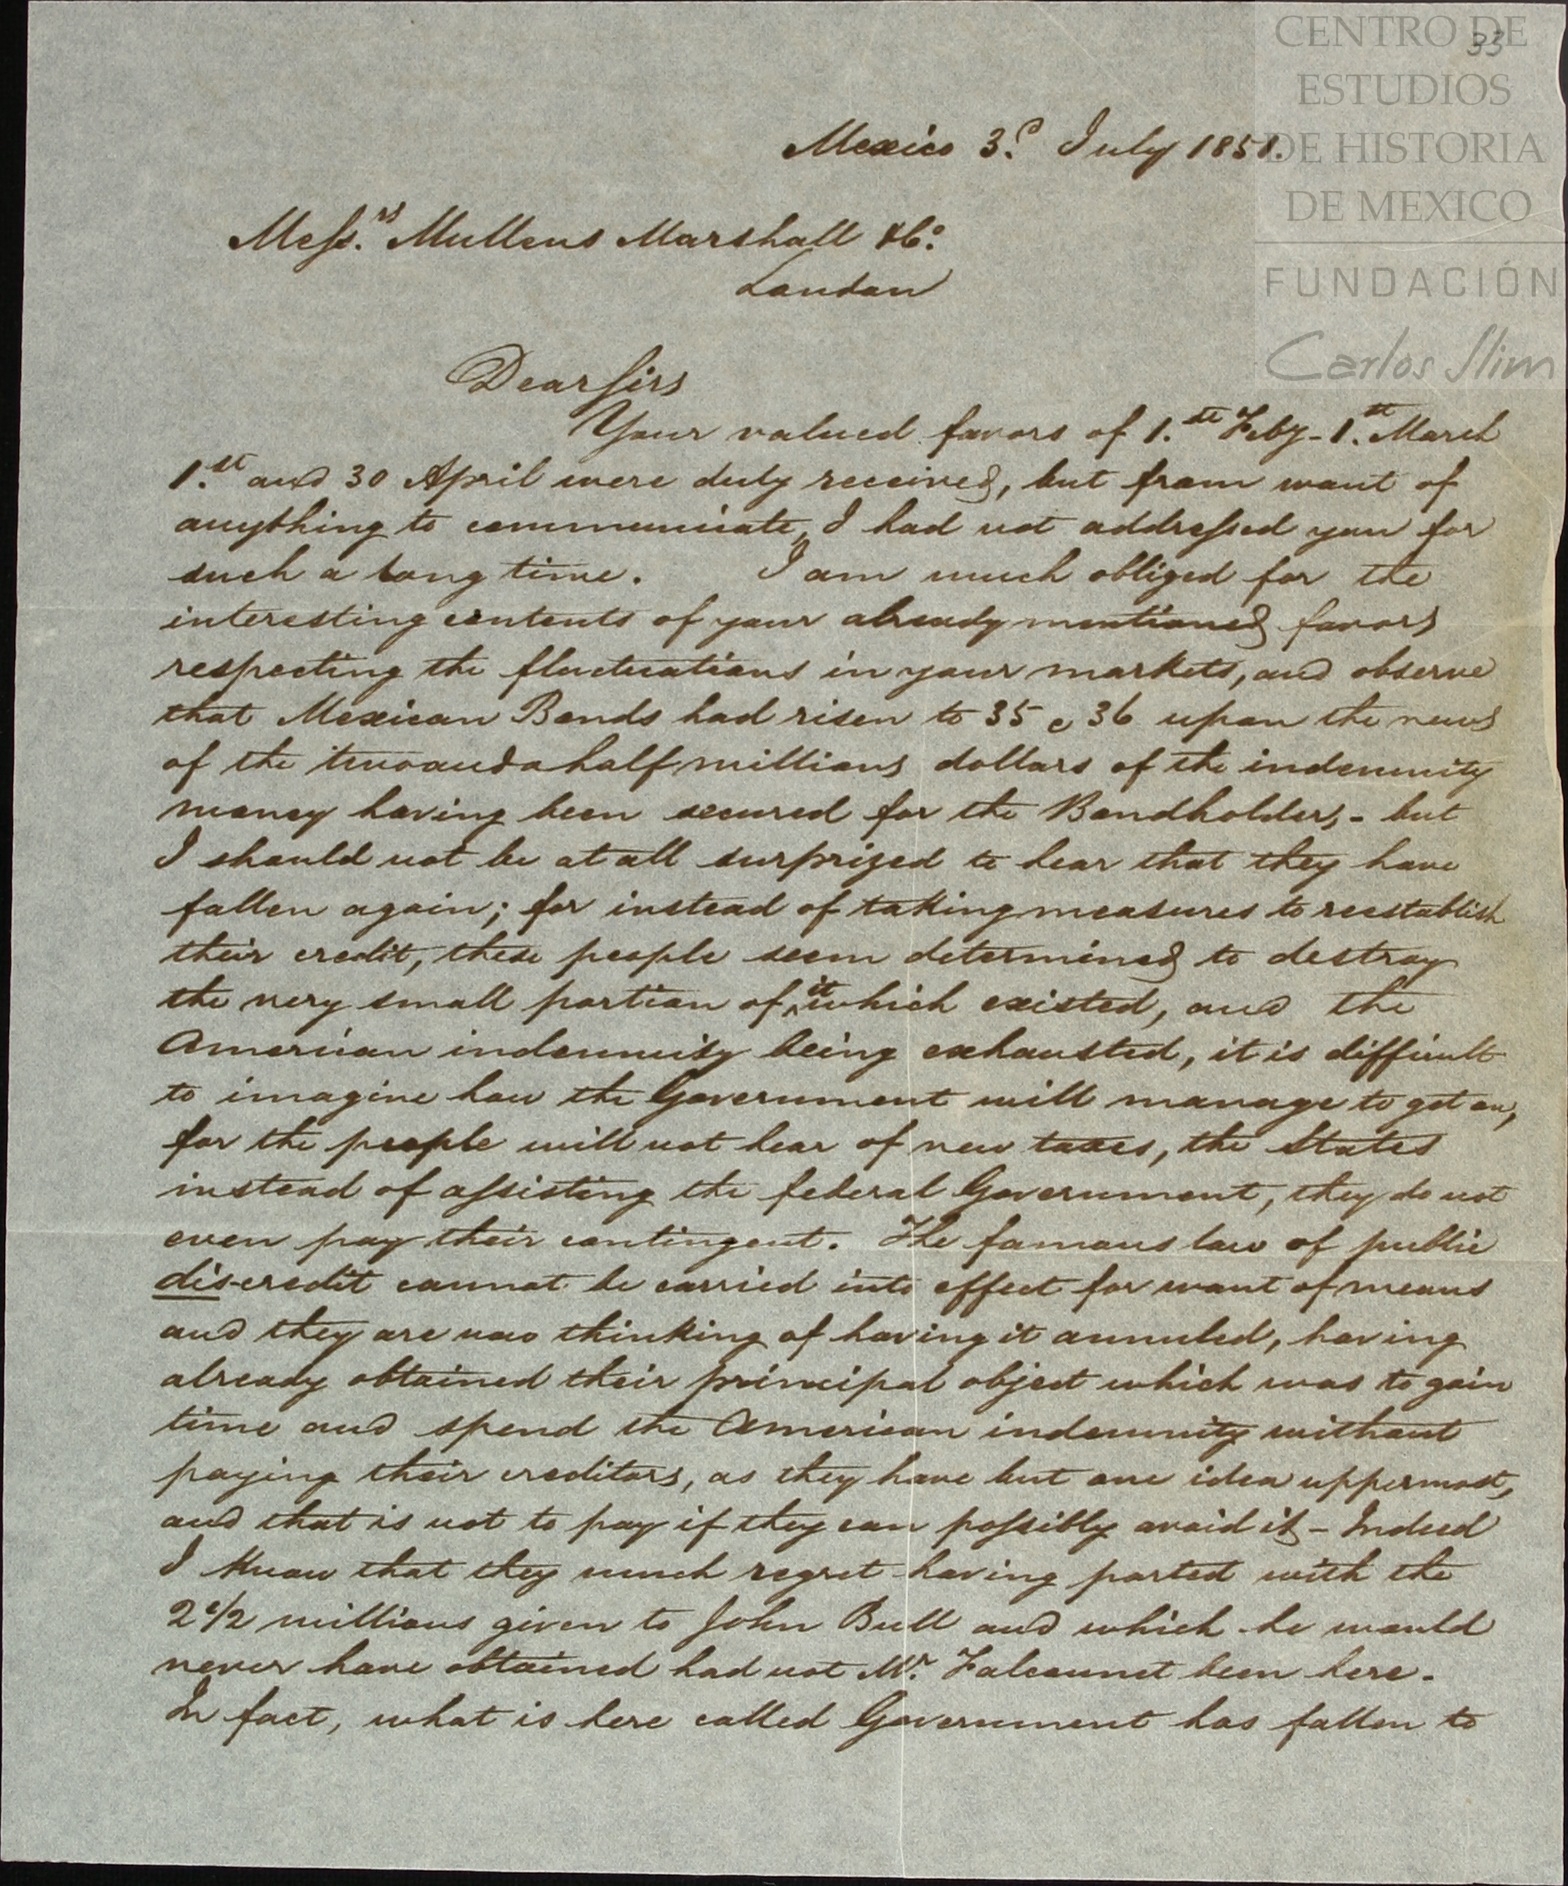 CENTRO DE
ESTUDIOS
DE HISTORIA
DE MEXICO
FUNDACIÓN
Carlos Slim
33
Mexico 3.d July 1851.
Mess.rs Mullens Marshall & Co.
London
Dear Sirs
Your valued favors of 1.st Feby - 1.st March
1.st and 30 April were duly received, but from want of
anything to communicate, I had not addressed you for
such a long time. I am much obliged for the
interesting contents of your already mentioned favors
respecting the fluctuations in your markets, and observe
that Mexican Bonds had risen to 35 @ 36 upon the news
of the two and a half millions dollars of the indemnity
money having been secured for the Bondholders, - but
I should not be at all surprized to hear that they have
fallen again; for instead of taking measures to reestablish
their credit, these people seem determined to destroy
the very small portion of it which existed, and the
American indemnity being exhausted, it is difficult
to imagine how the Government will manage to get on,
for the people will not hear of new taxes, the States
instead of assisting the federal Government, they do not
even pay their contingent. The famous law of public
dis-credit cannot be carried into effect for want of means
and they are now thinking of having it annuled, having
already obtained their principal object which was to gain
time and spend the American indemnity without
paying their creditors, as they have but one idea uppermost,
and that is not to pay if they can possibly avoid it - Indeed
I know that they much regret having parted with the
2 1/2 millions given to John Bull and which he would
never have obtained had not Mr. Falconnet been here.
In fact, what is here called Government has fallen to